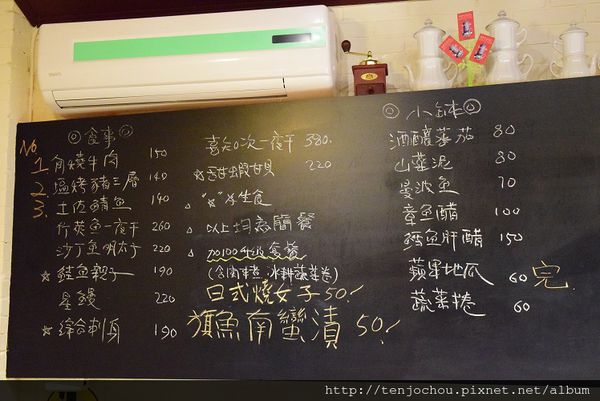 ◎食事◎
No
1 角燒牛肉 150
2. 鹽烤豬三層 140
3. 土佐鯖魚 140
竹莢魚一夜干 260
沙丁魚明太子 220
☆鮭魚親子 190
星鰻 220
☆綜合刺身 190
喜知次一夜干 380.
☆甜蝦 220
△ "☆"為生食
△ 以上均為簡餐
△ 加100升級套餐
日式燒女子50!
南蠻漬 50!
◎小缽◎
酒釀蕃茄 80
山藥泥 80
曼波魚 70
章魚醋 100
鱈魚肝醋 150
蘋果地瓜 60 完
蔬菜捲 60
http://tenjochou.pixnet.net/album